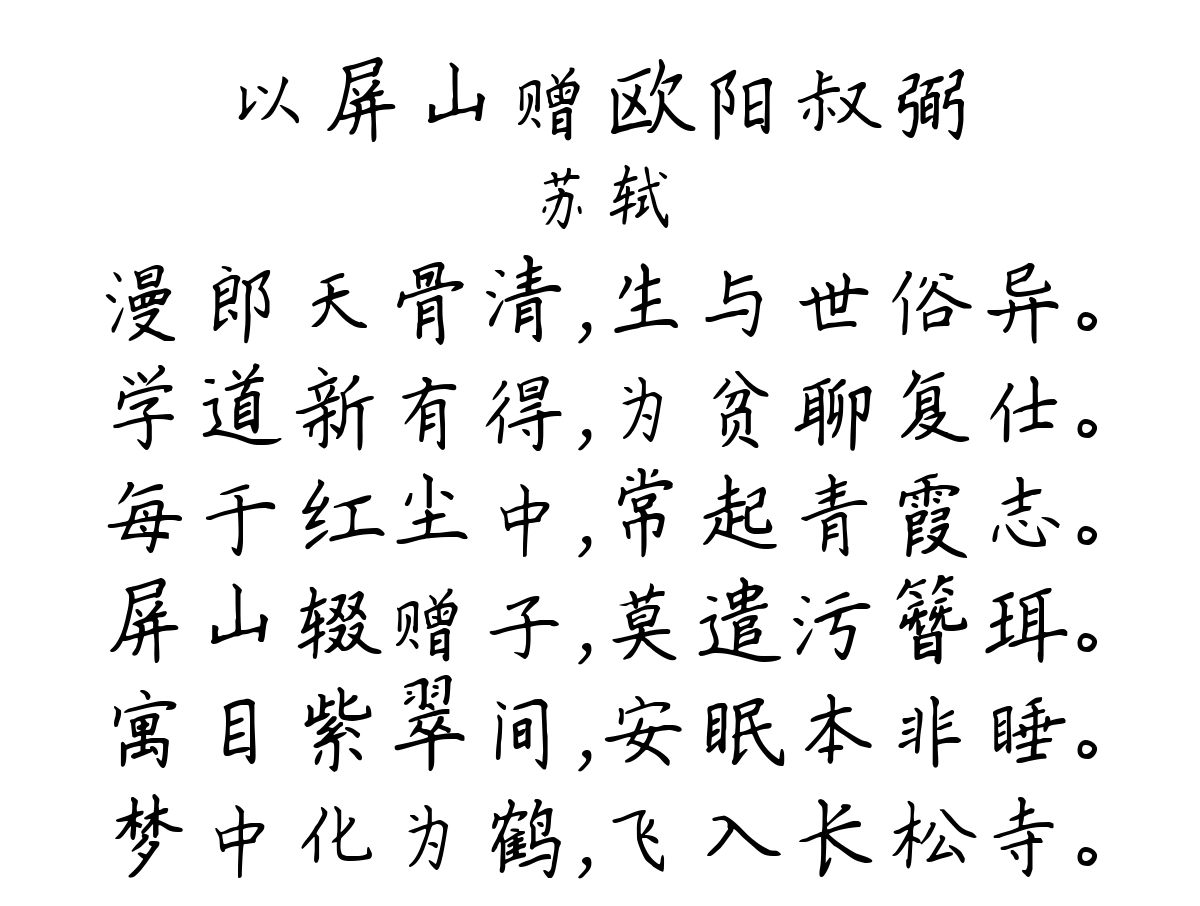 以屏山赠欧阳叔弼
苏轼
漫郎天骨清,生与世俗异。
学道新有得,为贫聊复仕。
每于红尘中,常起青霞志。
屏山辍赠子,莫遣污簪珥。
寓目紫翠间,安眠本非睡。
梦中化为鹤,飞入长松寺。